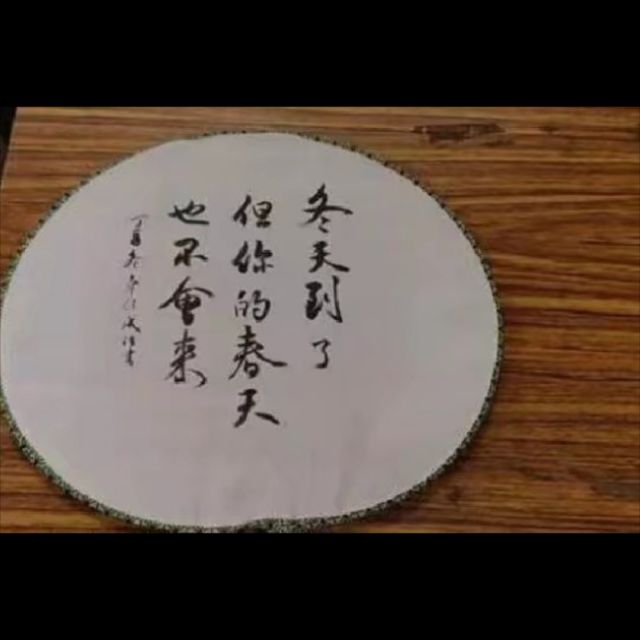 冬天到了
但你的春天
也不會来
丁酉冬